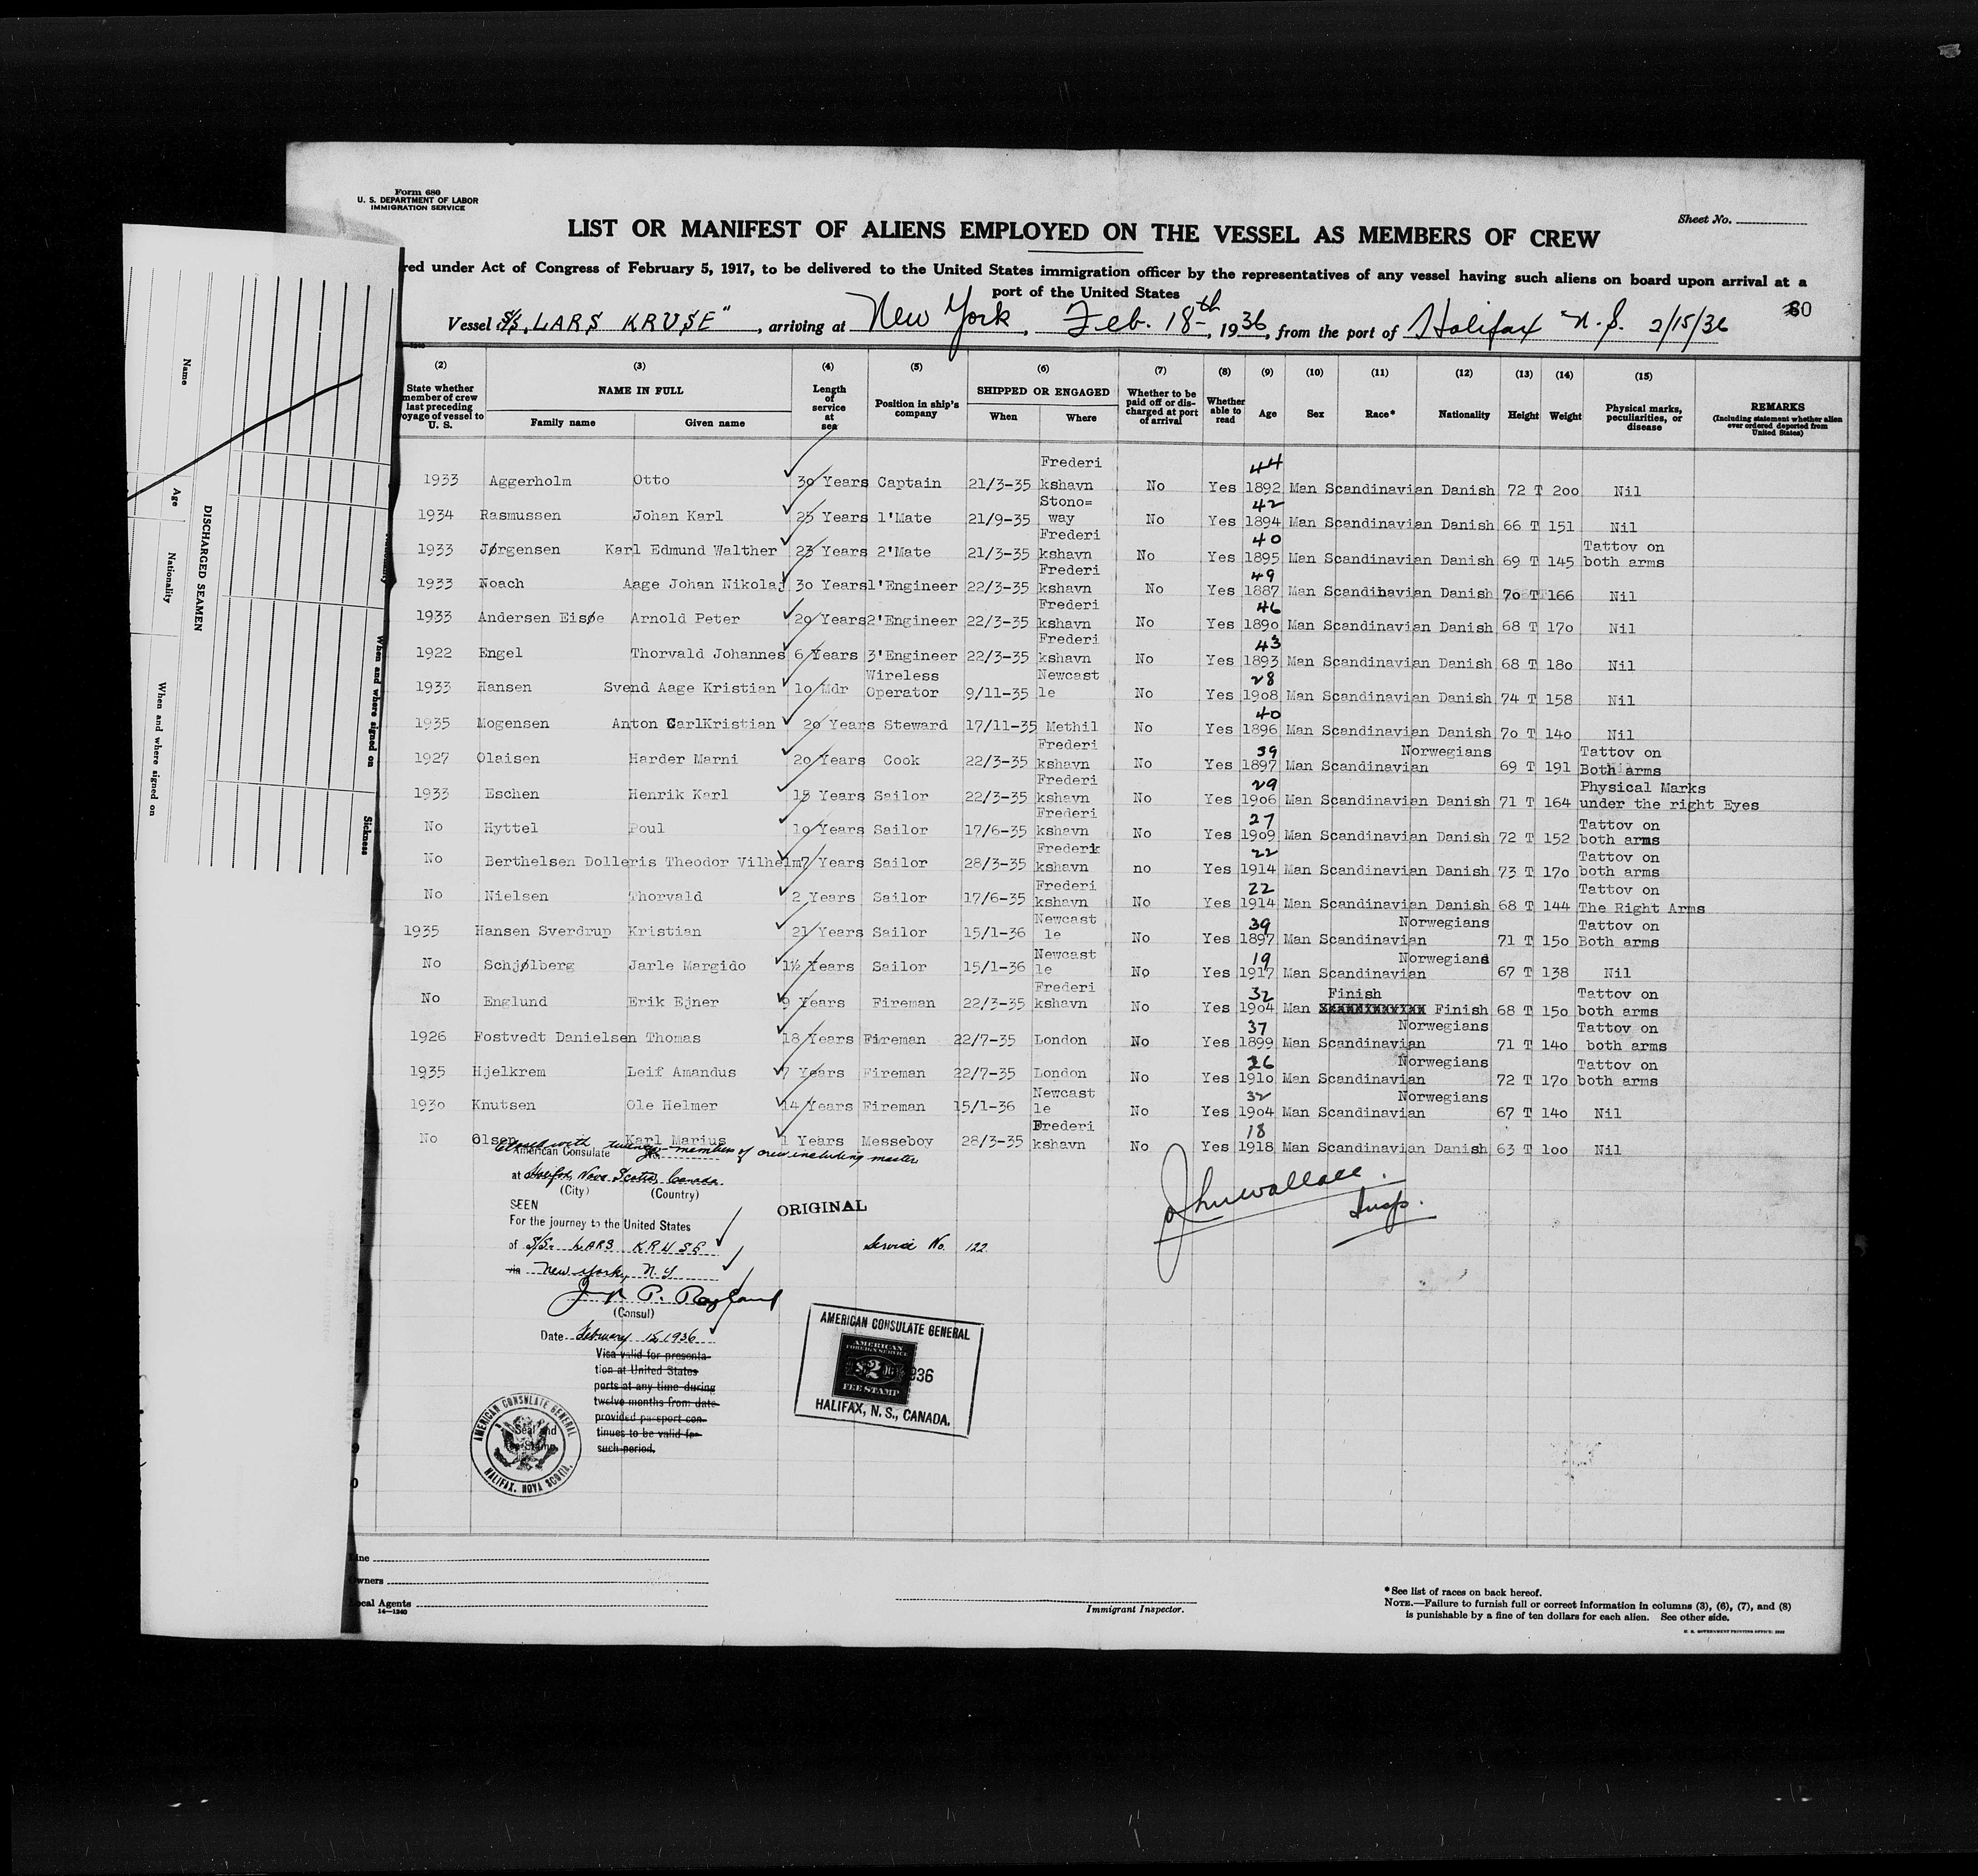 Form 680
U. S. DEPARTMENT OF LABOR
IMMIGRATION SERVICE
Sheet No.
LIST OR MANIFEST OF ALIENS EMPLOYED ON THE VESSEL AS MEMBERS OF CREW
red under Act of Congress of February 5, 1917, to be delivered to the United States immigration officer by the representatives of any vessel having such aliens on board upon arrival at a
port of the United States
Vessel S/S „LARS KRUSE", arriving at New York, Feb. 18th, 1936, from the port of Halifax N.S. 2/15/36
(2) (3) (4) (5) (6) (7) (8) (9) (10) (11) (12) (13) (14) (15)
State whether member of crew last preceding voyage of vessel to U. S.
NAME IN FULL
Family name Given name
Length of service at sea
Position in ship's company
SHIPPED OR ENGAGED
When Where
Whether to be paid off or discharged at port of arrival
Whether able to read
Age Sex Race* Nationality Height Weight
Physical marks, peculiarities, or disease
REMARKS
(Including statement whether alien ever ordered deported from United States)
1933 Aggerholm Otto 30 Years Captain 21/3-35 Frederikshavn No Yes 44 1892 Man Scandinavian Danish 72 T 200 Nil
1934 Rasmussen Johan Karl 25 Years 1'Mate 21/9-35 Stono=way No Yes 42 1894 Man Scandinavian Danish 66 T 151 Nil
1933 Jørgensen Karl Edmund Walther 23 Years 2'Mate 21/3-35 Frederikshavn No Yes 40 1895 Man Scandinavian Danish 69 T 145 Tattov on both arms
1933 Noach Aage Johan Nikolaj 30 Years 1'Engineer 22/3-35 Frederikshavn No Yes 49 1887 Man Scandinavian Danish 70 T 166 Nil
1933 Andersen Eisøe Arnold Peter 20 Years 2'Engineer 22/3-35 Frederikshavn No Yes 46 1890 Man Scandinavian Danish 68 T 170 Nil
1922 Engel Thorvald Johannes 6 Years 3'Engineer 22/3-35 Frederikshavn No Yes 43 1893 Man Scandinavian Danish 68 T 180 Nil
1933 Hansen Svend Aage Kristian 10 Mdr Wireless Operator 9/11-35 Newcastle No Yes 28 1908 Man Scandinavian Danish 74 T 158 Nil
1935 Mogensen Anton CarlKristian 20 Years Steward 17/11-35 Methil No Yes 40 1896 Man Scandinavian Danish 70 T 140 Nil
1927 Olaisen Harder Marni 20 Years Cook 22/3-35 Frederikshavn No Yes 39 1897 Man Scandinavian Norwegians 69 T 191 Tattov on Both arms
1933 Eschen Henrik Karl 15 Years Sailor 22/3-35 Frederikshavn No Yes 29 1906 Man Scandinavian Danish 71 T 164 Physical Marks under the right Eyes
No Hyttel Poul 10 Years Sailor 17/6-35 Frederikshavn No Yes 27 1909 Man Scandinavian Danish 72 T 152 Tattov on both arms
No Berthelsen Dolleris Theodor Vilhelm 7 Years Sailor 28/3-35 Frederikshavn no Yes 22 1914 Man Scandinavian Danish 73 T 170 Tattov on both arms
No Nielsen Thorvald 2 Years Sailor 17/6-35 Frederikshavn No Yes 22 1914 Man Scandinavian Danish 68 T 144 Tattov on The Right Arms
1935 Hansen Sverdrup Kristian 21 Years Sailor 15/1-36 Newcastle No Yes 39 1897 Man Scandinavian Norwegians 71 T 150 Tattov on Both arms
No Schjølberg Jarle Margido 1½ Years Sailor 15/1-36 Newcastle No Yes 19 1917 Man Scandinavian Norwegians 67 T 138 Nil
No Englund Erik Ejner 9 Years Fireman 22/3-35 Frederikshavn No Yes 32 1904 Man Finish Finish 68 T 150 Tattov on both arms
1926 Fostvedt Danielsen Thomas 18 Years Fireman 22/7-35 London No Yes 37 1899 Man Scandinavian Norwegians 71 T 140 Tattov on both arms
1935 Hjelkrem Leif Amandus 7 Years Fireman 22/7-35 London No Yes 26 1910 Man Scandinavian Norwegians 72 T 170 Tattov on both arms
1930 Knutsen Ole Helmer 14 Years Fireman 15/1-36 Newcastle No Yes 32 1904 Man Scandinavian Norwegians 67 T 140 Nil
No Olsen Karl Marius 1 Years Messeboy 28/3-35 Frederikshavn No Yes 18 1918 Man Scandinavian Danish 63 T 100 Nil
Closed with twenty members of crew including master
American Consulate
at Halifax, Nova Scotia, Canada
(City) (Country)
SEEN
For the journey to the United States
of S/S. LARS KRUSE
via New York, N.Y.
(Consul)
Date February 15, 1936
Visa valid for presenta-
tion at United States
ports at any time during
twelve months from date
provided passport con-
tinues to be valid for
such period.
ORIGINAL
Service No. 122
Wallace
Insp.
AMERICAN CONSULATE GENERAL
AMERICAN
FOREIGN SERVICE
$2
FEE STAMP
936
HALIFAX, N. S., CANADA.
AMERICAN CONSULATE GENERAL
Seal and
Fee Stamp
HALIFAX, NOVA SCOTIA.
Line
Owners
Local Agents
14—1240
Immigrant Inspector.
*See list of races on back hereof.
NOTE.—Failure to furnish full or correct information in columns (3), (6), (7), and (8)
is punishable by a fine of ten dollars for each alien. See other side.
DISCHARGED SEAMEN
Name
Age
Nationality
When and where signed on
When and where signed on
Sickness